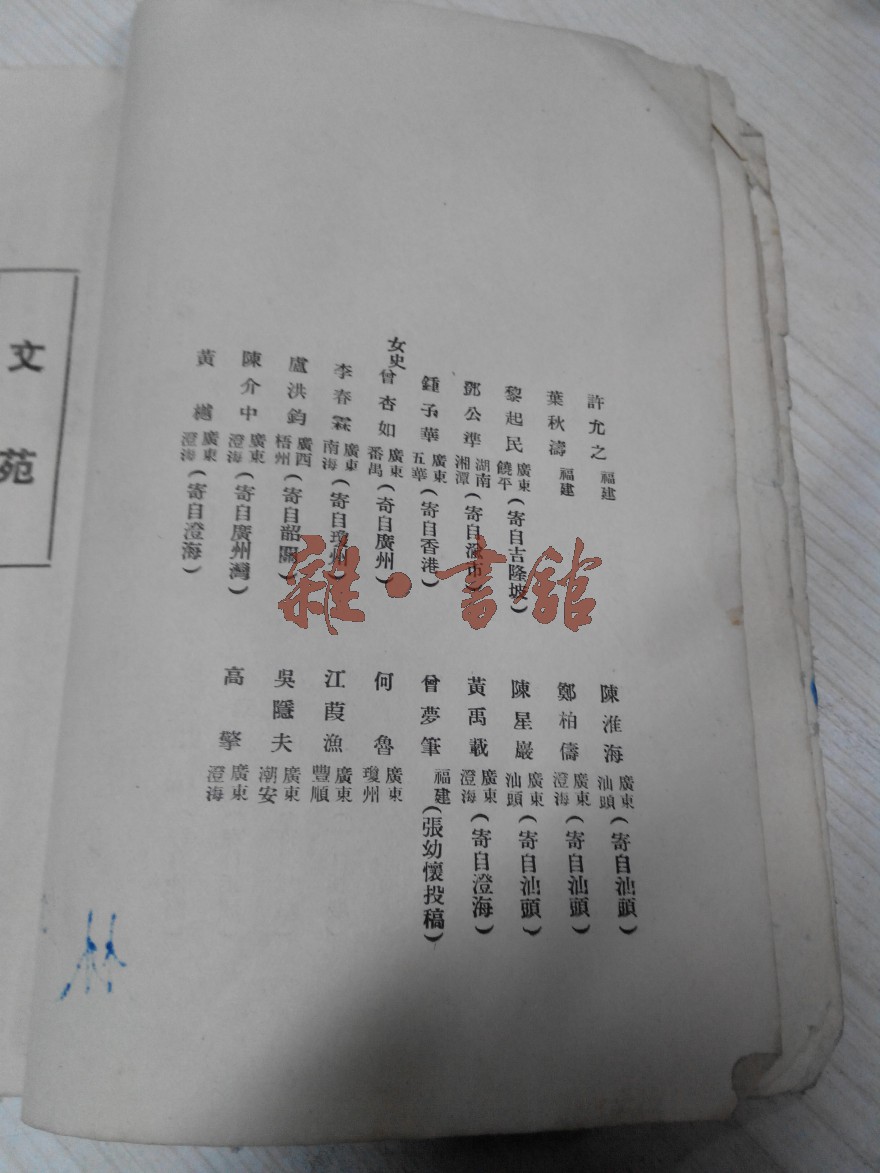 許允之 福建
葉秋濤 福建
黎起民 廣東饒平(寄自吉隆坡)
鄧公準 湖南湘潭(寄自滬市)
鍾予華 廣東五華(寄自香港)
女史曾杏如 廣東番禺(寄自廣州)
李春霖 廣東南海(寄自瓊州)
盧洪鈞 廣西梧州(寄自韶關)
陳介中 廣東澄海(寄自廣州灣)
黃樾 廣東澄海(寄自澄海)
陳淮海 廣東汕頭(寄自汕頭)
鄭柏儔 廣東澄海(寄自汕頭)
陳星巖 廣東汕頭(寄自汕頭)
黃禹載 廣東澄海(寄自澄海)
曾夢筆 福建(張幼懷投稿)
何魯 廣東瓊州
江葭漁 廣東豐順
吳隱夫 廣東潮安
高擎 廣東澄海
文苑
雜·書舘